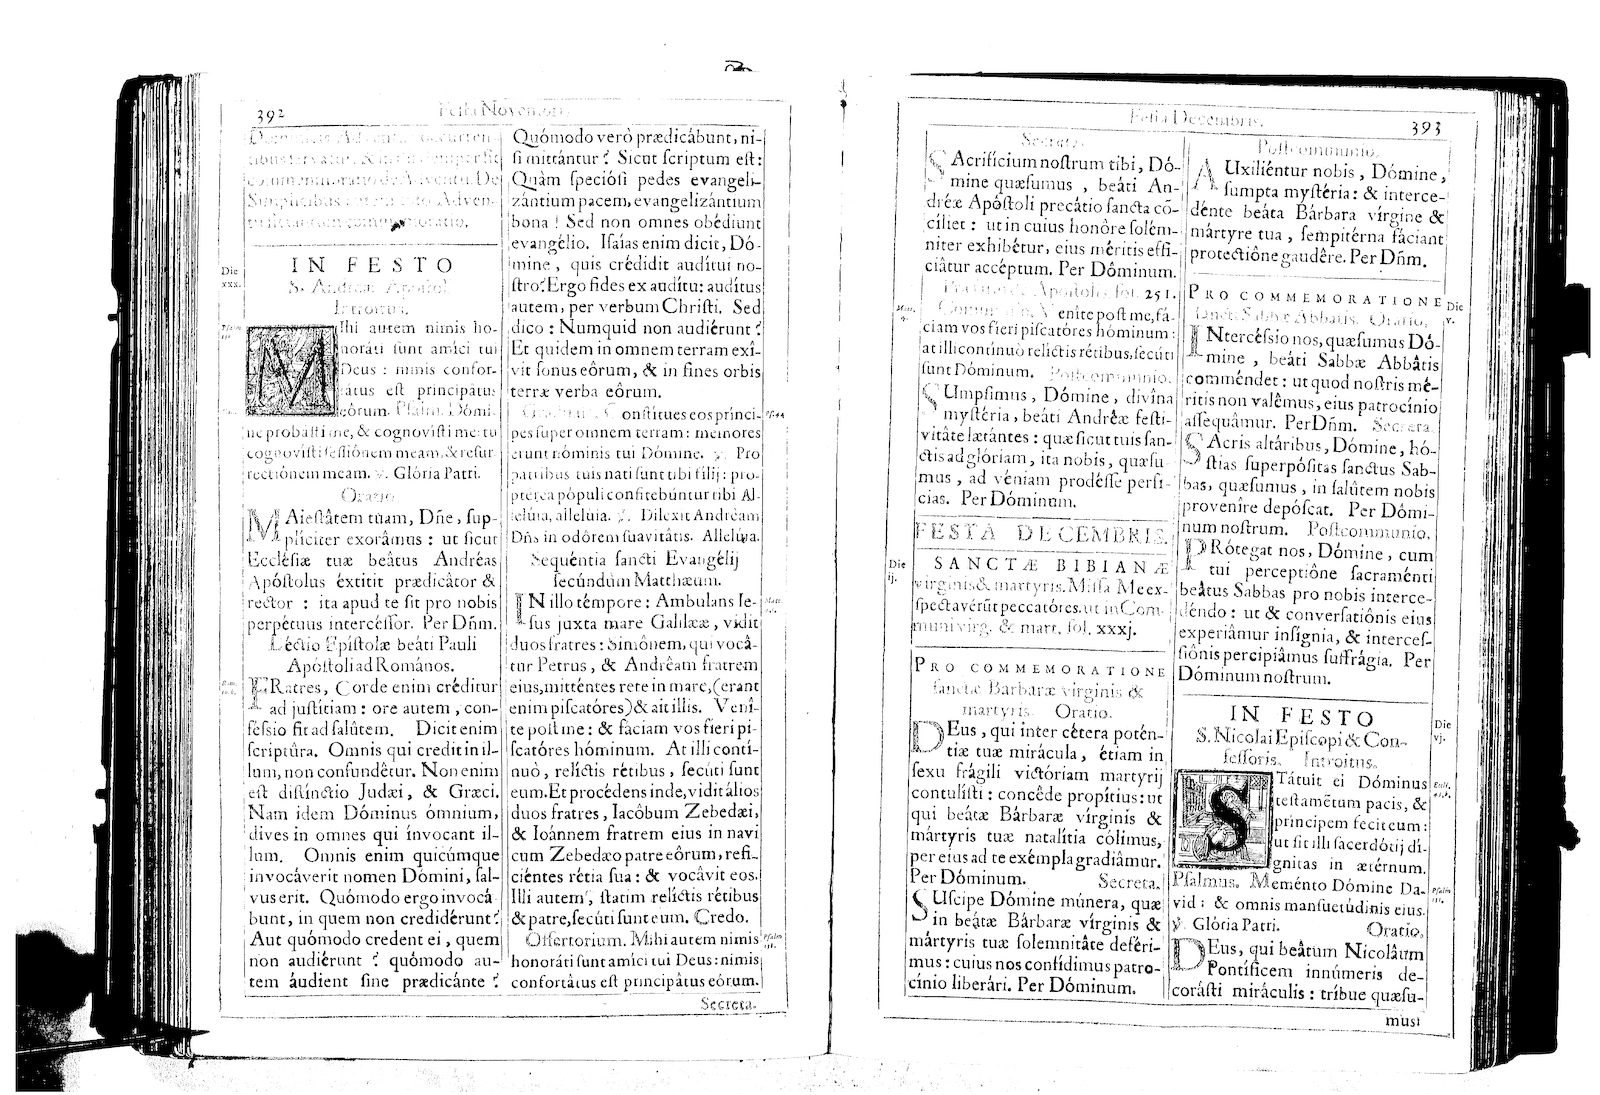 392
Festa Novembris.
IN FESTO
S. Andreæ Apostol.
Introitus.
Die
xxx.
MIhi autem nimis ho-
noráti ſunt amíci tui
Deus : nimis confor-
tátus eſt principátus
eórum. Pſalm. Dómi-
ne probaſti me, & cognovíſti me: tu
cognovíſti ſeſſiónem meam, & reſur
rectiónem meam. ℣. Glória Patri.
Oratio
MAieſtâtem tuam, Dñe, ſup-
plíciter exorâmus : ut ſicut
Eccléſiæ tuæ beátus Andréas
Apóſtolus éxtitit prædicâtor &
rector : ita apud te ſit pro nobis
perpétuus interceſſor. Per Dñm.
Léctio Epíſtolæ beáti Pauli
Apóſtoli ad Romános.
FRatres, Corde enim créditur
ad juſtítiam : ore autem , con-
féſsio fit ad ſalûtem. Dicit enim
ſcriptûra. Omnis qui credit in il-
lum, non confundêtur. Non enim
eſt diſtínctio Judæi, & Græci.
Nam idem Dóminus ómnium,
dives in omnes qui ínvocant il-
lum. Omnis enim quicúmque
invocáverit nomen Dómini, ſal-
vus erit. Quómodo ergo invocá
bunt, in quem non credidérunt?
Aut quómodo credent ei , quem
non audiérunt ? quómodo au-
tem áudient ſine prædicánte ?
Quómodo verò prædicábunt, ni-
ſi mittántur? Sicut ſcriptum eſt:
Quàm ſpecióſi pedes evangeli-
zántium pacem, evangelizántium
bona ! Sed non omnes obédiunt
evangélio. Iſaías enim dicit, Dó-
mine , quis crédidit audítui no-
ſtro? Ergo fides ex audítu: audítus
autem, per verbum Chriſti. Sed
dico : Numquid non audiérunt?
Et quidem in omnem terram exí-
vit ſonus eôrum, & in fines orbis
terræ verba eôrum.
Constítues eos prínci-
pes ſuper omnem terram: memores
erunt nóminis tui Dómine. ℣. Pro
patribus tuis nati ſunt tibi fílij : pro-
pterea pópuli confitebúntur tibi Al-
lelúia, allelúia. ℣. Diléxit Andréam
Dñs in odórem ſuavitátis. Allelúya.
Sequéntia ſancti Evangélij
ſecúndum Matthæum.
IN illo témpore : Ambulans Ie-
ſus juxta mare Galilææ, vidit
duos fratres : Simônem, qui vocâ-
tur Petrus, & Andréam fratrem
eius, mitténtes rete in mare, (erant
enim piſcatóres) & ait illis. Venî-
te poſt me : & fáciam vos fíeri pi-
ſcatóres hóminum. At illi contí-
nuò , relíctis rétibus , ſecúti ſunt
eum. Et procédens inde, vidit álios
duos fratres , Iacôbum Zebedæi,
& Ioánnem fratrem eius in navi
cum Zebedæo patre eôrum, refi-
ciéntes rétia ſua : & vocâvit eos.
Illi autem , ſtatim relíctis rétibus
& patre, ſecúti ſunt eum. Credo.
Offertorium. Mihi autem nimis
honoráti ſunt amíci tui Deus : nimis
confortátus eſt principátus eórum.
Secreta.
Festa Decembris.
393
Secreta.
SAcrifícium noſtrum tibi, Dó-
mine quæſumus , beáti An-
dréæ Apóſtoli precátio ſancta cō-
cíliet : ut in cuius honôre ſolém-
niter exhibétur, eius méritis effi-
ciâtur accéptum. Per Dóminum.
Præfatio de Apoſtolis fol. 251.
Venite poſt me, fá-
ciam vos fíeri piſcatóres hóminum :
at illi contínuò relíctis rétibus, ſecúti
ſunt Dóminum. Poſtcommunio.
SUmpſimus , Dómine , divína
myſtéria , beáti Andréæ feſti-
vitâte lætántes : quæ ſicut tuis ſan-
ctis ad glóriam, ita nobis, quæſu
mus , ad véniam prodéſſe perfi-
cias. Per Dóminum.
FESTA DECEMBRIS.
Die
ij.
SANCTÆ BIBIANÆ
virginis & martyris. Miſſa Me ex-
ſpectavérūt peccatóres. ut in Com-
muni virg. & mart. fol. xxxj.
PRO COMMEMORATIONE
ſanctæ Barbaræ virginis &
martyris. Oratio.
DEus , qui inter cétera potén-
tiæ tuæ mirácula , étiam in
ſexu frágili victóriam martyrij
contulíſti : concêde propítius : ut
qui beátæ Bárbaræ vírginis &
mártyris tuæ natalítia cólimus,
per eius ad te exémpla gradiâmur.
Per Dóminum. Secreta.
SUſcipe Dómine múnera, quæ
in beátæ Bárbaræ vírginis &
mártyris tuæ ſolemnitâte deféri-
mus : cuius nos confídimus patro-
cínio liberári. Per Dóminum.
Poſtcommunio.
AUxiliéntur nobis , Dómine,
ſumpta myſtéria : & interce-
dénte beáta Bárbara vírgine &
mártyre tua , ſempitérna fáciant
protectiône gaudêre. Per Dñm.
PRO COMMEMORATIONE
Die
v.
ſancti Sabbæ Abbatis. Oratio.
INtercéſsio nos, quæſumus Dó-
mine , beáti Sabbæ Abbâtis
comméndet : ut quod noſtris mé-
ritis non valêmus, eius patrocínio
aſſequâmur. Per Dñm. Secreta
SAcris altáribus, Dómine, hó-
ſtias ſuperpóſitas ſanctus Sab-
bas, quæſumus , in ſalûtem nobis
provenire depóſcat. Per Dómi-
num noſtrum. Poſtcommunio.
PRótegat nos, Dómine , cum
tui perceptiône ſacraménti
beâtus Sabbas pro nobis interce-
déndo : ut & converſatiônis eius
experiâmur inſígnia, & interceſ-
ſiônis percipiâmus ſuffrágia. Per
Dóminum noſtrum.
IN FESTO
Die
vj.
S. Nicolai Epiſcopi & Con-
feſſoris. Introitus.
STátuit ei Dóminus
teſtamētum pacis, &
príncipem fecit eum :
ut ſit illi ſacerdótij dí-
gnitas in ætérnum.
Pſalmus. Meménto Dómine Da-
vid : & omnis manſuetúdinis eius.
℣. Glória Patri. Oratio.
DEus, qui beâtum Nicolâum
Pontíficem innúmeris de-
coráſti miráculis : tríbue quæſu-
mus